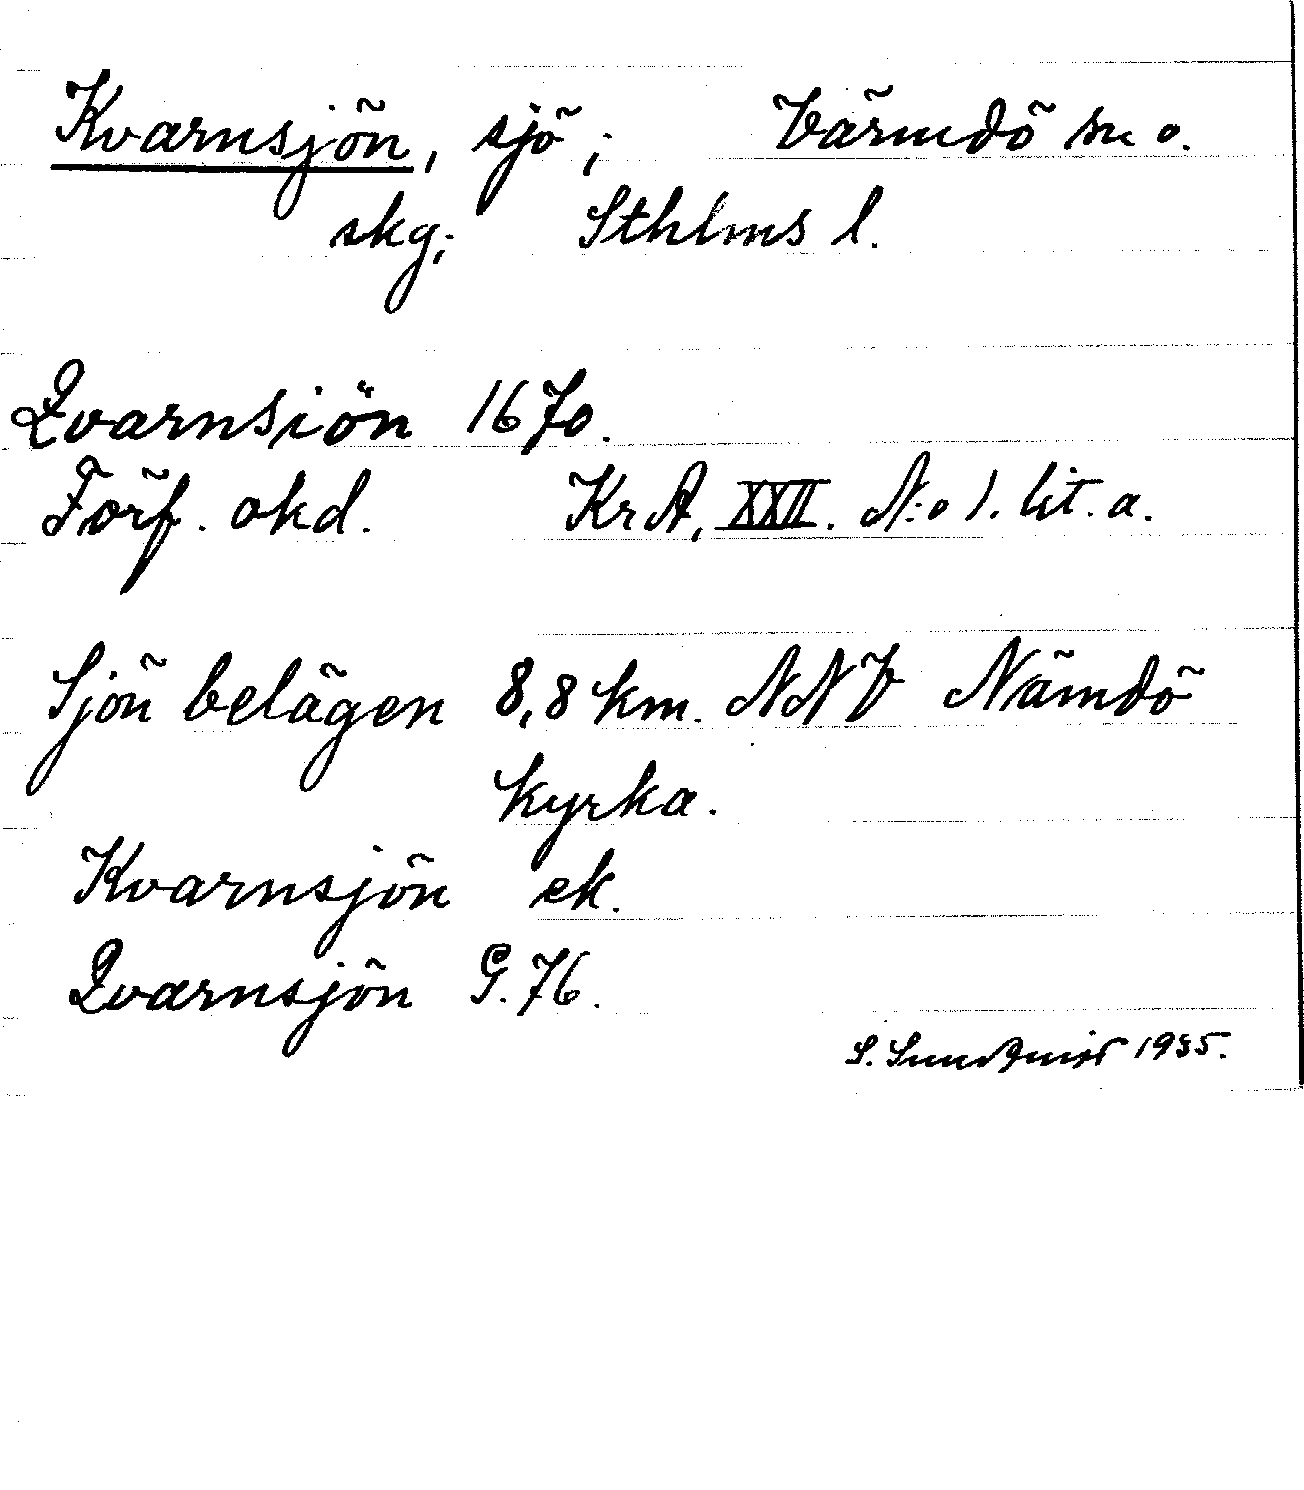 Kvarnsjön, sjö; Värmdö sn o.
skg; Sthlms l.
Qvarnsiön 1670.
Förf. okd. KrA, XXII. N:o 1. lit. a.
Sjön belägen 8,8 km. NNV Nämdö
kyrka.
Kvarnsjön ek.
Qvarnsjön G. 76.
S. Sundqvist 1935.